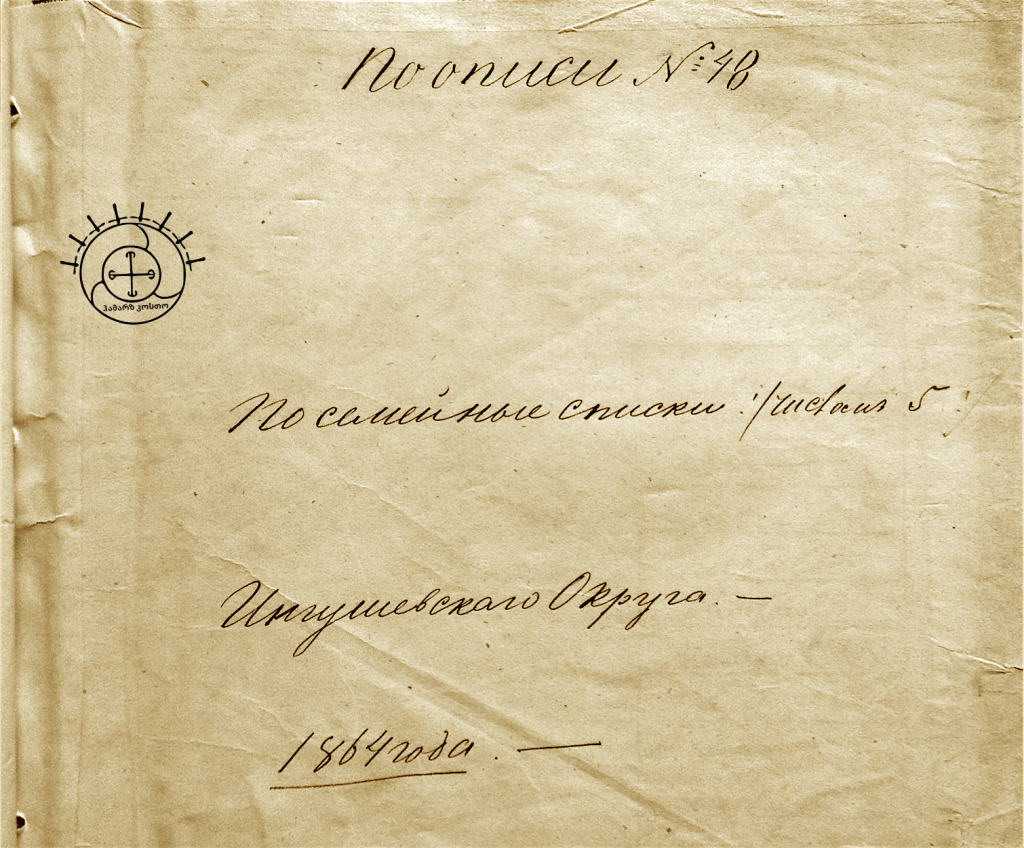 По описи № 48
ჰამარზ კოსთო
Посемейные списки /: числомъ 5 :/
Ингушевскаго Округа. —
1864 года. —